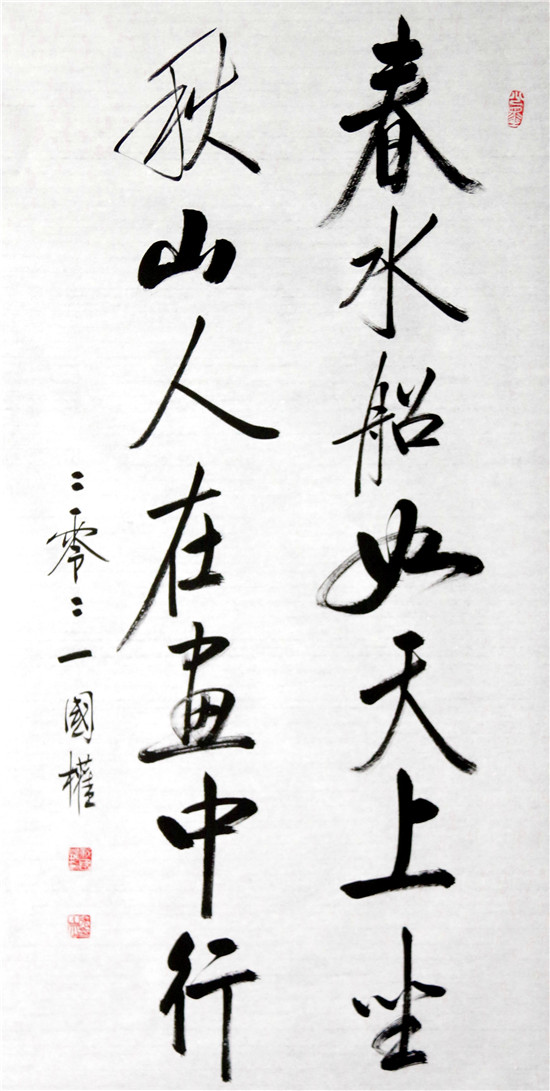 春水船如天上坐
秋山人在畫中行
二零二一國權